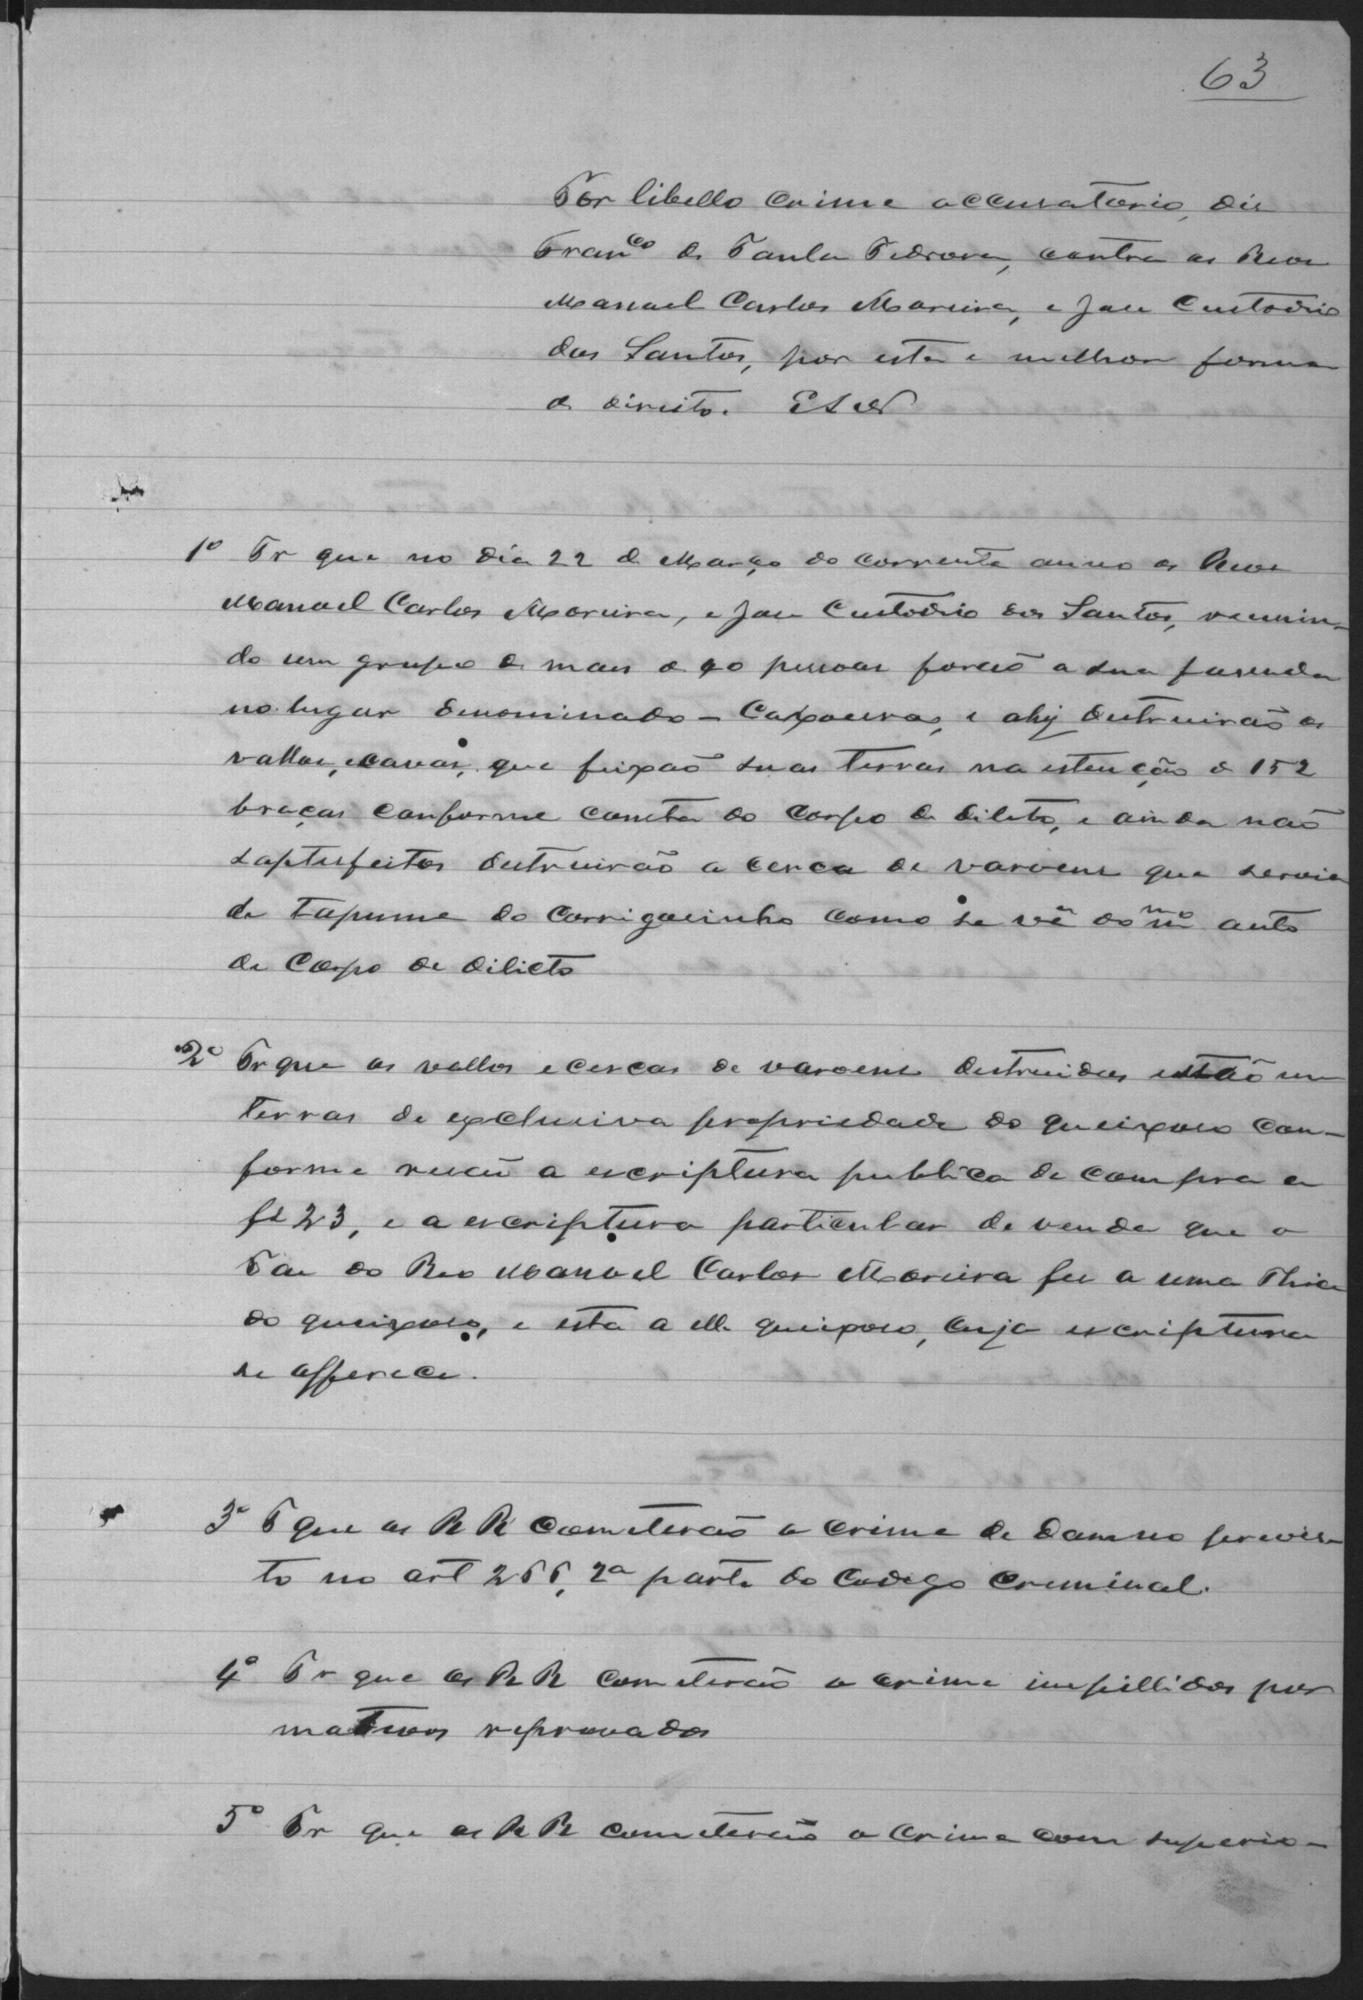 63
Por libello crime accusatorio, diz
Fran.co de Paula Pedrosa, contra os Reos
Manoel Carlos Moreira, e José Custodio
dos Santos, por esta e melhor forma
de direito. E S N
1º Pr que no dia 22 de Março do corrente anno os Reos
Manoel Carlos Moreira, e José Custodio dos Santos, reunin-
do um grupo de mais de 40 pessoas forão a sua fasenda
no lugar denominado - Caxoeiras, e ahy destruirão os
vallos, e cavas, que feixaõ suas terras na estenção de 152
braças conforme consta do Corpo de dilito, e ainda não
satisfeitos destruirão a cerca de varoens que servia
de tapume do Corrigoeinho como se vê do mmo auto
de Corpo de dilicto
2º Pr que os vallos e cercas de varoens destruidos estão em
terras de exclusiva propriedade do queixoso con-
forme resa a escriptura publica de compra a
fs 23, e a escriptura particular de venda que o
Pae do Reo Manoel Carlos Moreira fez a uma Thia
do queixoso, e esta a elle queixoso, cuja escriptura
se offerece.
3º P que os R R cometerão o crime de damno previs-
to no art 266, 2a parte do Codego Creminal.
4º Pr que os R R cometerão o crime impillidos por
motivos reprovados
5º Pr que os R R cometerão o crime com superio-